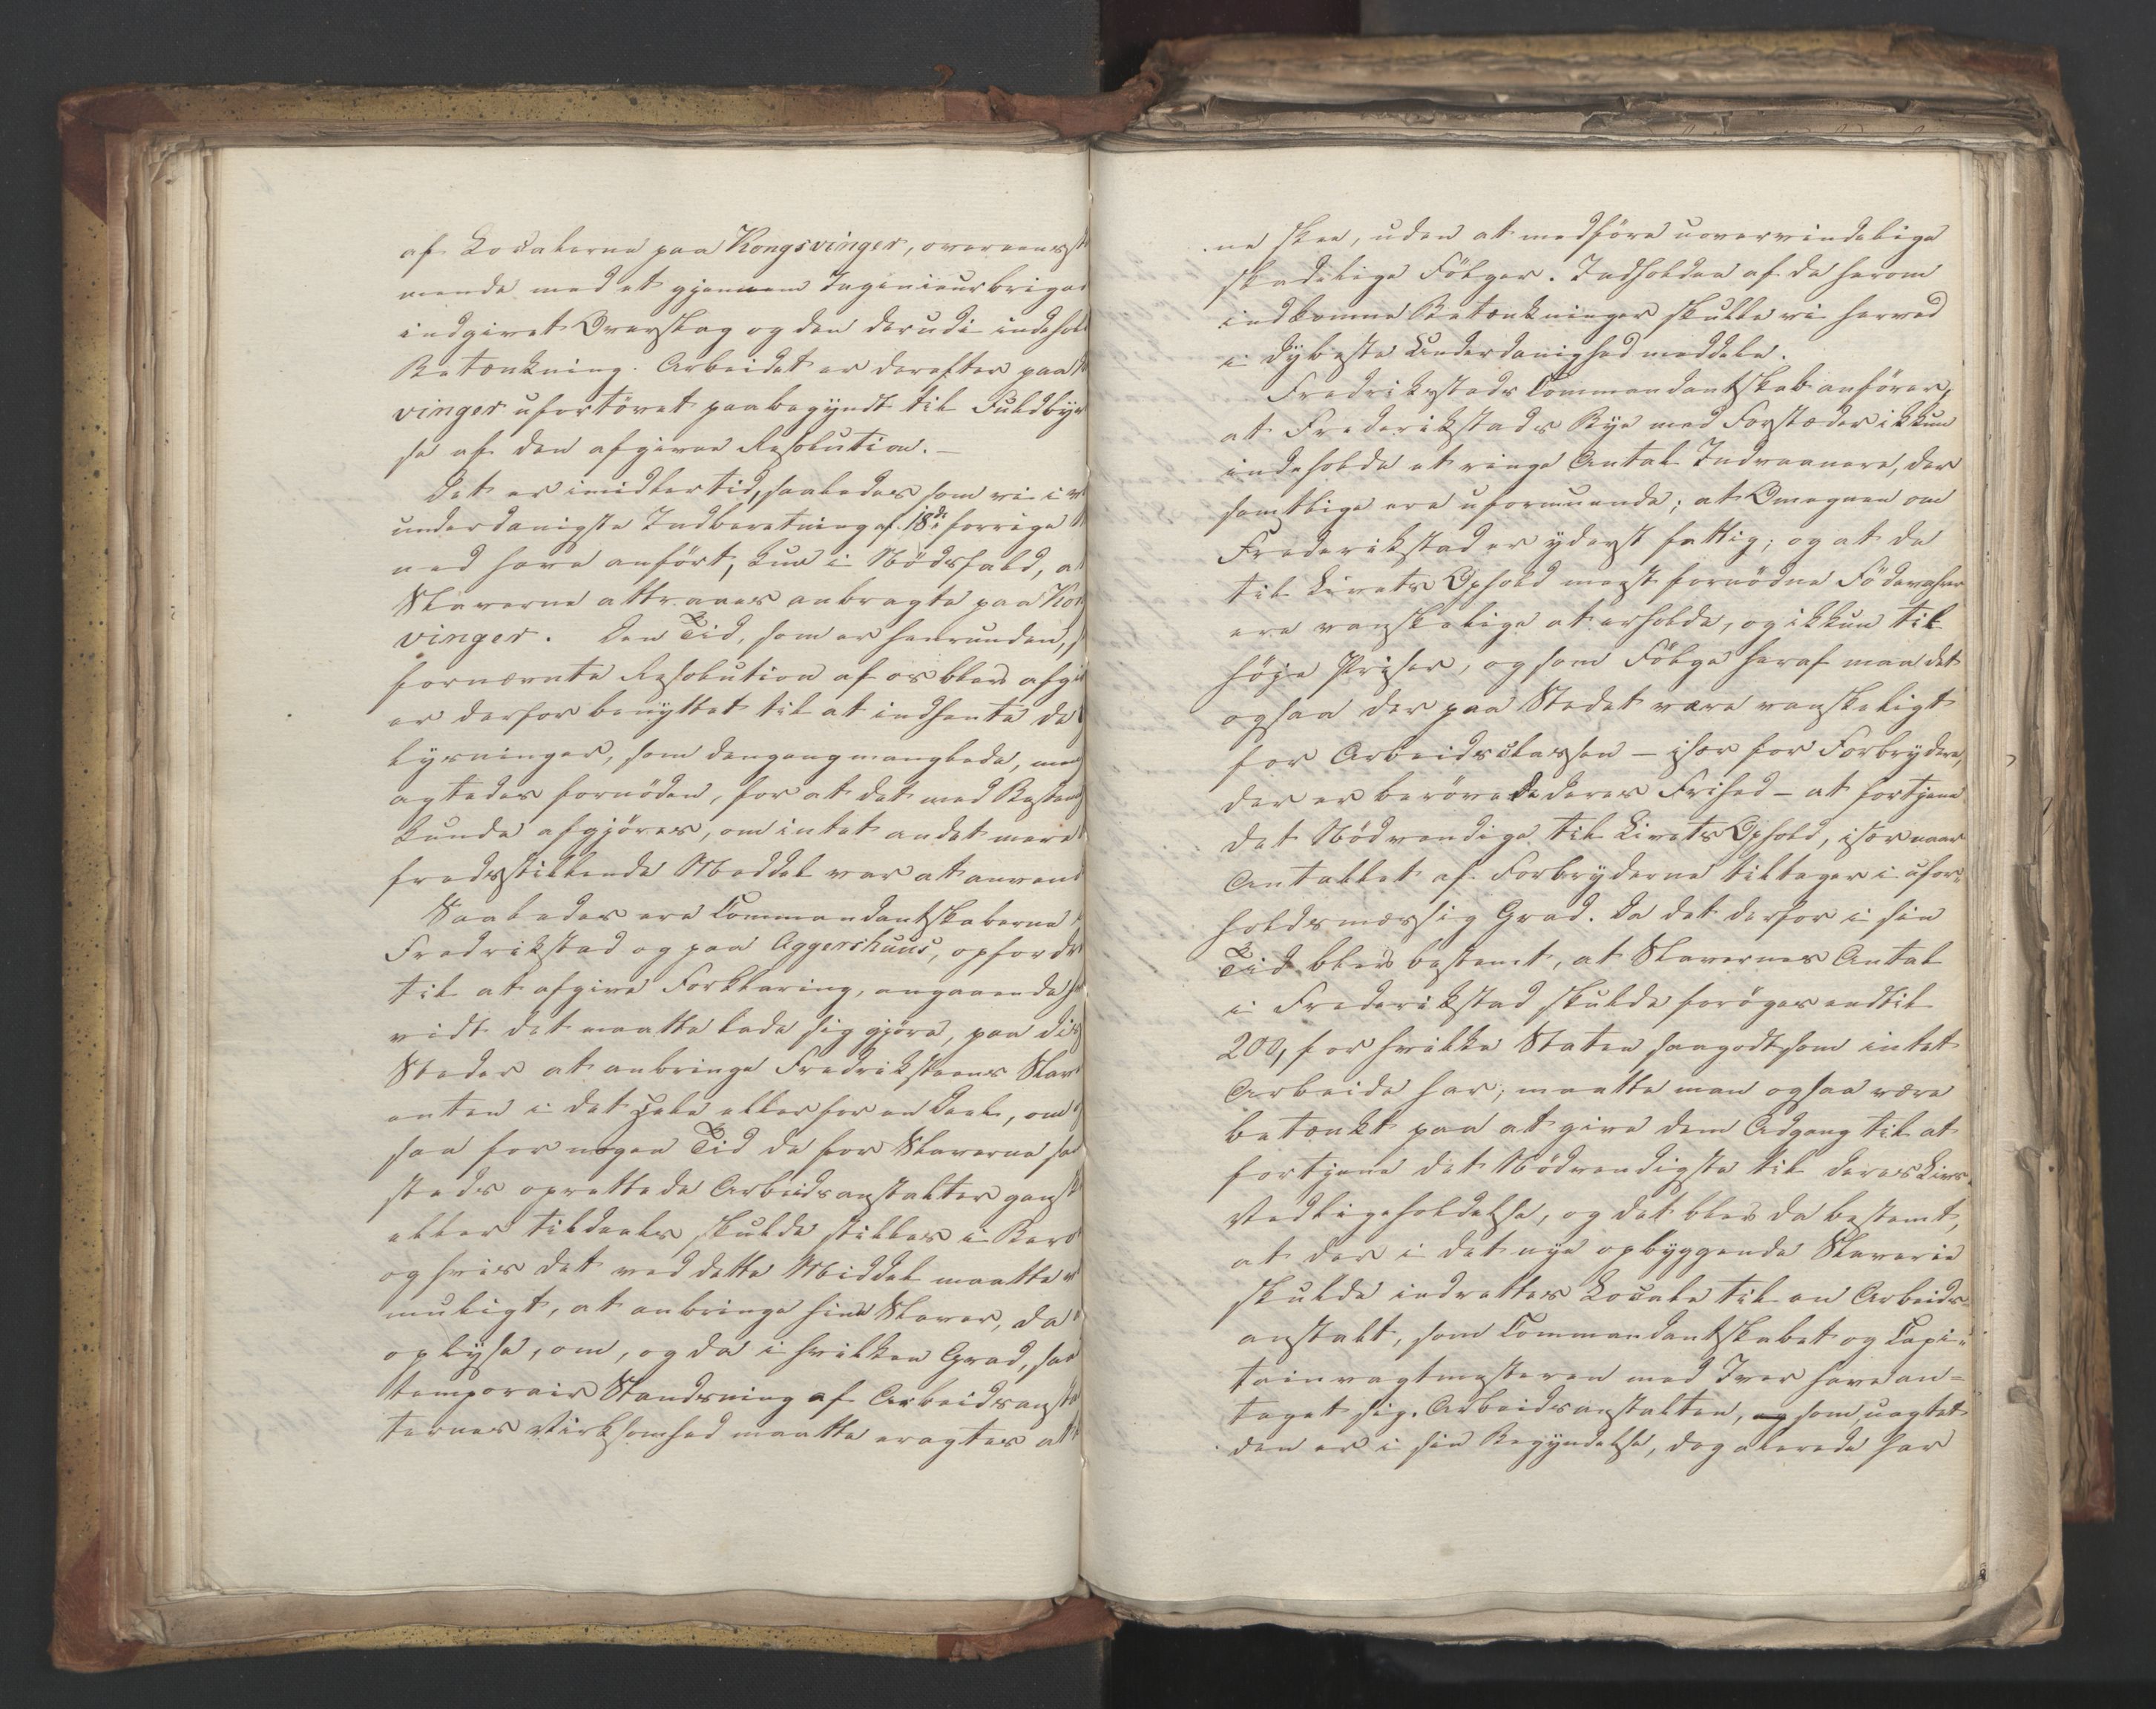 af Localerne paa Kongsvinger, overeensst
mende med et gjennem Ingenieurbrigad
indgivet Overslag og den derudi indehol
Betænkning. Arbeidet er derefter paa
vinger ufortövet paabegyndt til Fuldbyr
se af den afgivne Resolution. –
Det er imidlertid, saaledes som vi i v
underdanigste Indberetning af 18de forrige
ned have anfört, kun i Nödsfald, at
Slaverne attraaes anbragte paa Kon
vinger. Den Tid, som er henrunden, s
fornævnte Resolution af os blev afgi
er derfor benyttet til at indhente de
lysninger, som dengang manglede, men
agtedes fornöden, for at det med Bestem
kunde afgjöres, om intet andet mere
fredsstillende Meddel var at anvend
Saaledes ere Commandantskaberne
Fredrikstad og paa Aggershuus, opfordr
til at afgive Forklaring, angaaende h
vidt det maatte lade sig gjöre, paa di
Steder at anbringe Fredriksteens Slav
enten i det Hele eller for en Deel, om
saa for nogen Tid de for Slaverne sa
steds oprettede Arbeidsanstalter ganst
eller tildeels skulde stilles i Bero
og hvis det ved dette Middel maatte v
muligt, at anbringe hine Slaver, da
oplyse, om, og da i hvilken Grad, saa
temporair Standsning af Arbeidsansta
ternes Virksomhed maatte eragtes at
ne skee, uden at medföre uovervindelige
skadelige Fölger. Indholden af de herom
indkomne Betænkninger skulle vi herved
i dybeste Underdanighed meddele.
Fredrikstads Commandantskab anförer,
at Frederikstads Bye med Forstæder ikkun
indeholde et ringe Antal Indvaanere, der
samtlige ere uformuende; at Omegnen om
Frederikstad er yderst fattig; og at de
til Livets Ophold mest fornödne Födevahrer
ere vanskelige at erholde, og ikkun til
höje Priser, og som Fölge heraf maa det
ogsaa der paa Stedet være vanskeligt
for Arbeidsclassen – især for Forbrydere,
der er berövede deres Frihed – at fortjene
det Nödvendige til Livets Ophold, især naar
Antallet af Forbryderne tiltager i ufor=
holdsmæssig Grad. Da det derfor i sin
Tid blev bestemt, at Slavernes Antal
i Frederikstad skulde foröges indtil
200, for hvilke Staten saagodtsom intet
Arbeide har, maatte man ogsaa være
betænkt paa at give dem Adgang til at
fortjene det Nödvendigste til deres Livs
Vedligeholdelse, og det blev da bestemt,
at der i det nye opbyggende Slaverie
skulde indrettes Locale til en Arbeids=
anstalt, som Commandantskabet og Capi=
tainvagtmesteren med Iver have an=
taget sig. Arbeidsanstalten, og som, uagtet
den er i sin Begyndelse, dog allerede har